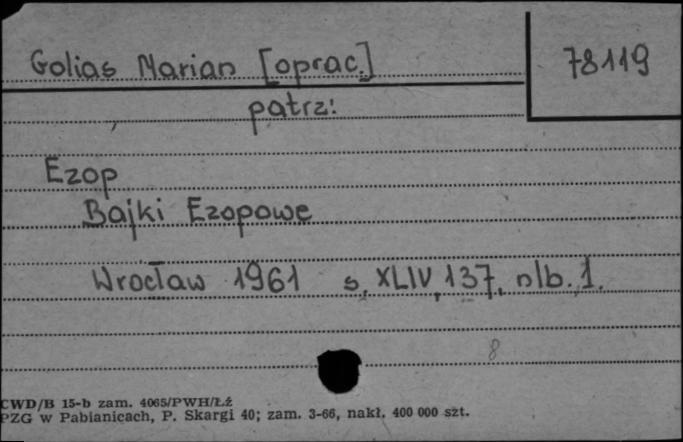 Golias Marian [oprac.]
78119
patrz:
Ezop
Bajki Ezopowe
Wrocław 1961 s. XLIV, 137, nlb. 1.
8
CWD/B 15-b zam. 4065/PWH/Łź
PZG w Pabianicach, P. Skargi 40; zam. 3-66, nakł. 400 000 szt.